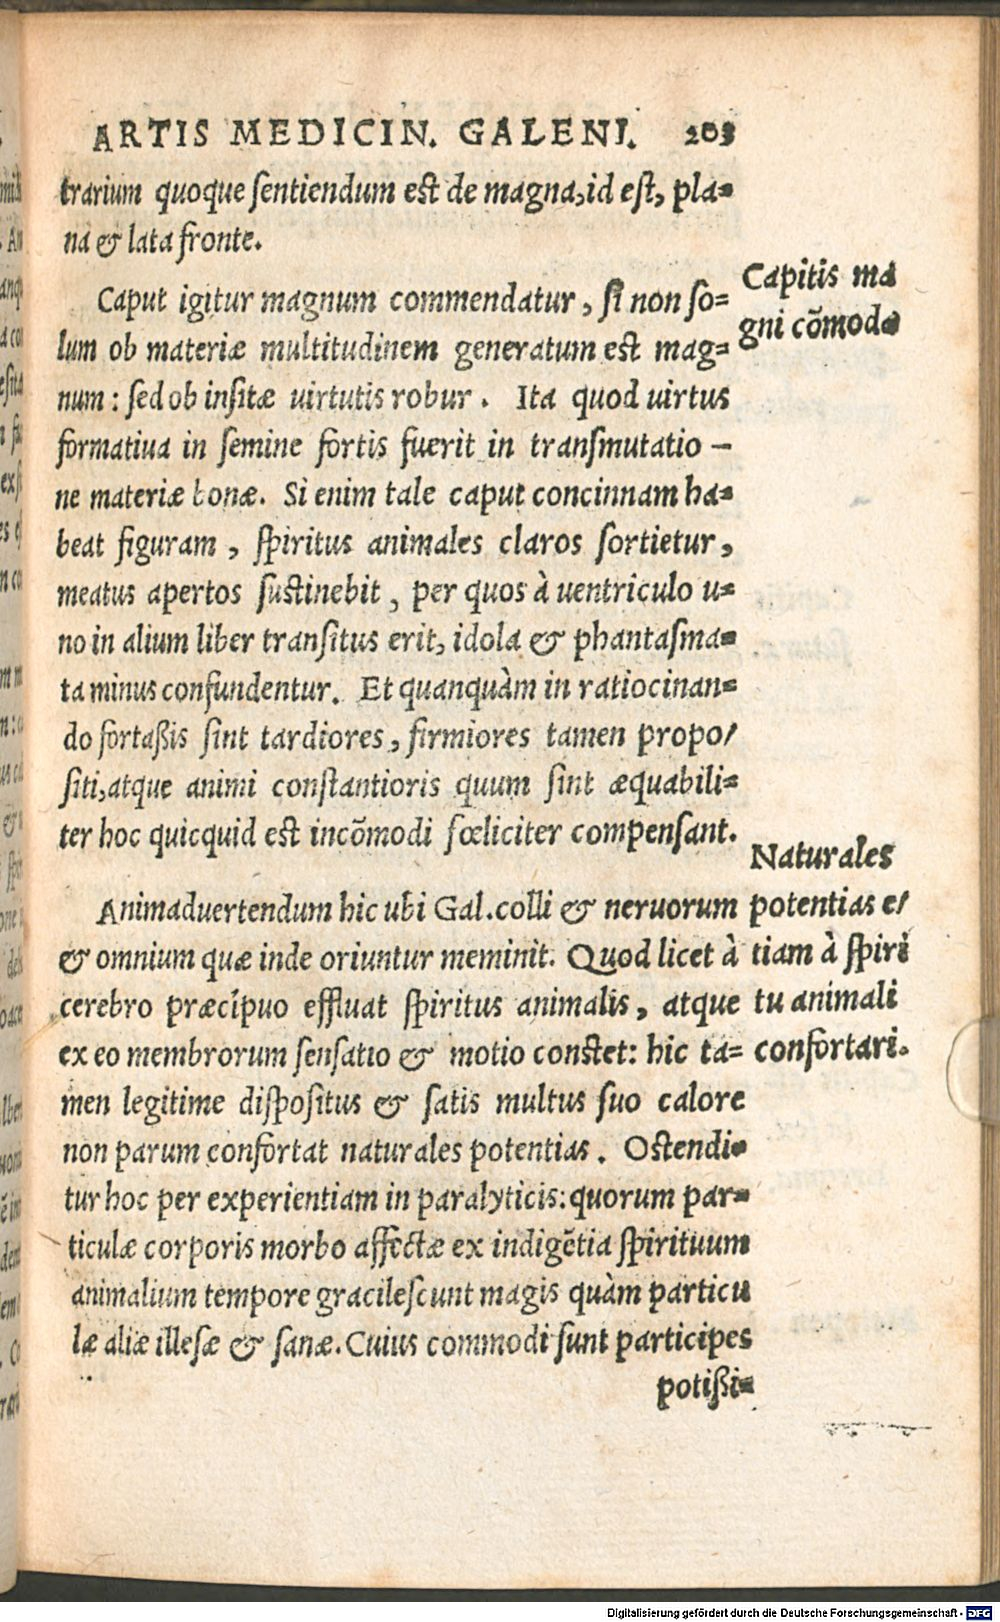 ARTIS MEDICIN. GALENI. 203
trarium quoque sentiendum est de magna, id est, pla=
na & lata fronte.
Caput igitur magnum commendatur, si non so=
lum ob materiæ multitudinem generatum est mag=
num: sed ob insitæ uirtutis robur. Ita quod uirtus
formatiua in semine fortis fuerit in transmutatio –
ne materiæ bonæ. Si enim tale caput concinnam ha=
beat figuram, spiritus animales claros sortietur,
meatus apertos sustinebit, per quos à uentriculo u=
no in alium liber transitus erit, idola & phantasma=
ta minus confundentur. Et quanquàm in ratiocinan=
do fortaßis sint tardiores, firmiores tamen propo/
siti, atque animi constantioris quum sint æquabili=
ter hoc quicquid est incõmodi fœliciter compensant.
Capitis ma
gni cõmoda
Animaduertendum hic ubi Gal. colli & neruorum
& omnium quæ inde oriuntur meminit. Quod licet à
cerebro præcipuo effluat spiritus animalis, atque
ex eo membrorum sensatio & motio constet: hic ta=
men legitime dispositus & satis multus suo calore
non parum confortat naturales potentias. Ostendi=
tur hoc per experientiam in paralyticis: quorum par=
ticulæ corporis morbo affectæ ex indigẽtia spirituum
animalium tempore gracilescunt magis quàm particu
læ aliæ illesæ & sanæ. Cuius commodi sunt participes
potißi=
Naturales
potentias e/
tiam à spiri
tu animali
confortari.
Digitalisierung gefördert durch die Deutsche Forschungsgemeinschaft - DFG